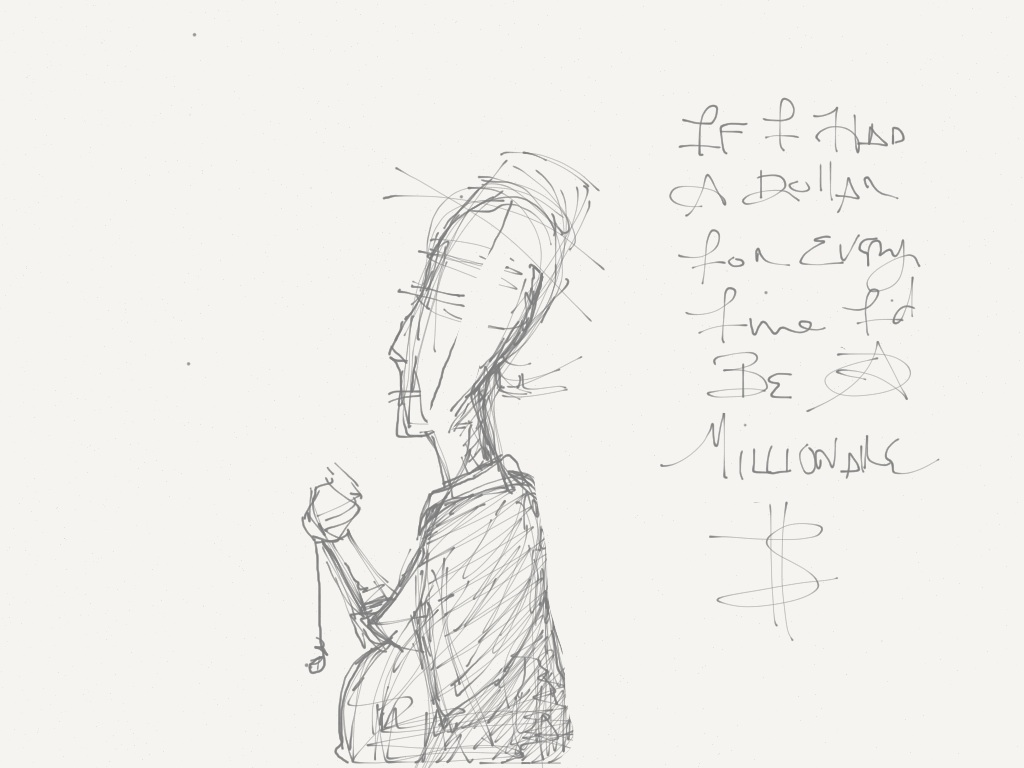 IF I HAD
A DOLLAR
for EVERY
time I'd
BE A
MILLIONARE
$